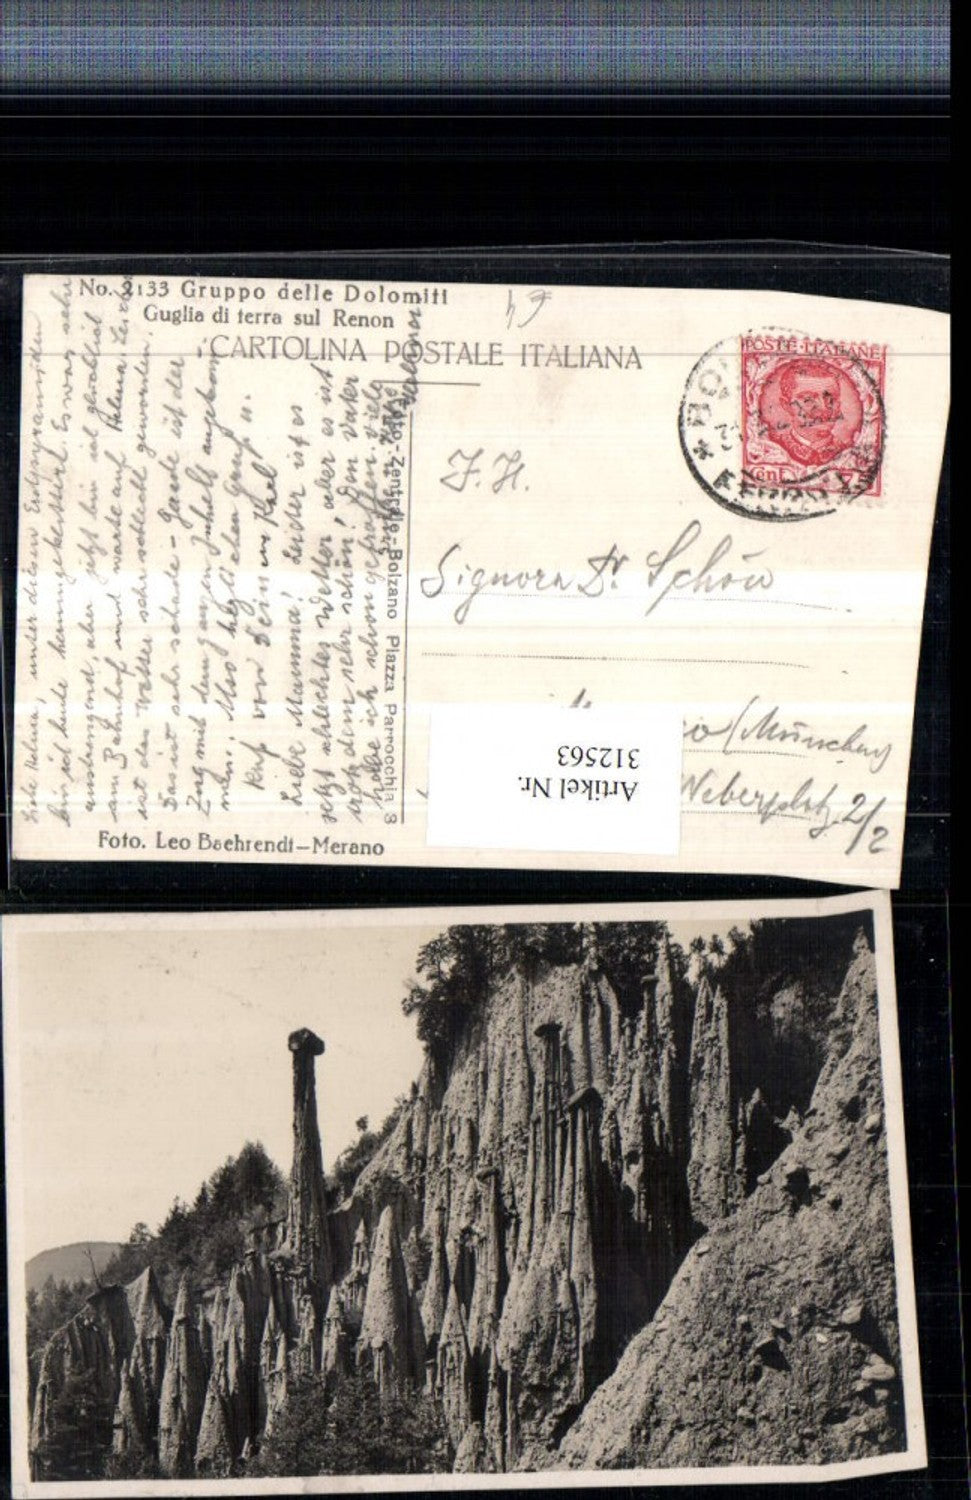 No. 2133 Gruppo delle Dolomiti
Guglia di terra sul Renon
CARTOLINA POSTALE ITALIANA
64
POSTE ITALIANE
Cent
FERROVIA
J. H.
Signora Dr. Schön
(München)
Weberplatz 2/2
Artikel Nr.
312563
unter diesen Erdpyramiden
bin ich heute herumgeklettert. Es war sehr
anstrengend, aber jetzt bin ich glücklich
am Bahnhof und warte auf Helma. Leider
ist das Wetter sehr schlecht geworden.
Das ist sehr schade - Gerade ist der
Zug mit dem ganzen Inhalt angekom-
men. Also herzlichen Gruß u.
Kuß von Deinem Karl
Liebe Mamma! Leider ist es
jetzt schlechtes Wetter, aber es ist
trotzdem sehr schön! Den Vater
habe ich schon getroffen. Viele
Foto-Zentrale-Bolzano Piazza Parrocchia 8
Foto. Leo Baehrendt-Merano